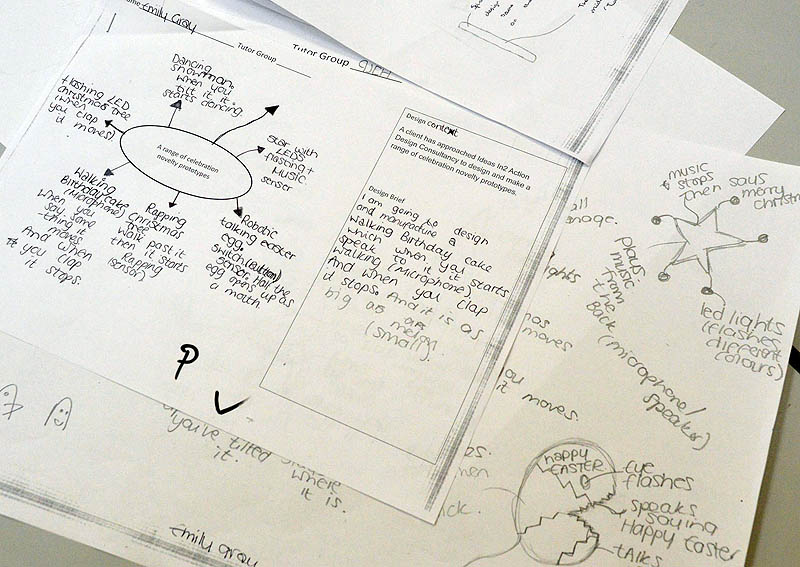 Emily Gray
Tutor Group
Tutor Group
Dancing
snowman
when you
tilt it it
starts dancing.
Flashing LED
christmas tree
(when
you clap
it moves)
star with
LEDS
flasting +
music
sensor
A range of celebration
novelty prototypes
Walking
Birthday cake
(microphone)
when you
say some
thing it
moves
And when
* you clap
it stops.
Rapping
Christmas
tree
walk past it
then it starts
Rapping
(sensor)
Robotic
talking easter
egg
switch (button)
Sensor. Half the
egg opens up as
a mouth
P
Design Context
A client has approached Ideas In2 Action
Design Consultancy to design and make a
range of celebration novelty prototypes.
Design Brief
I am going to design
and manufacture a
walking Birthday cake
which when you
speak to it it starts
walking (microphone).
And when you clap
it stops. And it is as
big as an
melon.
(small).
music
stops
then says
merry
plays
music
from
the
Back (microphone/
speaker)
led lights
(flashes
different
colours)
moves
it moves.
you've tilted
it.
where
it is.
Emily gray
happy
EASTER
eye
flashes
speaks
saying
Happy Easter
talks